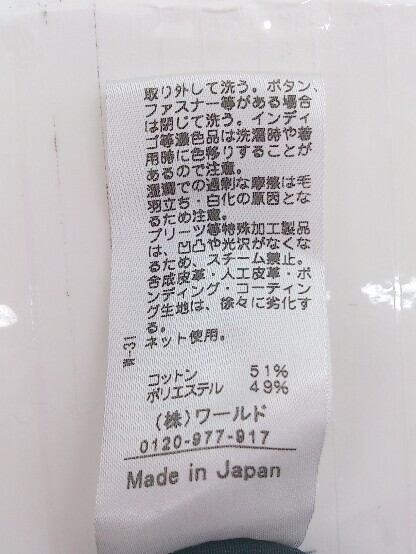 取り外して洗う。ボタン、
ファスナー等がある場合
は閉じて洗う。インディ
ゴ等濃色品は洗濯時や着
用時に色移りすることが
あるので注意。
湿潤での過剰な摩擦は毛
羽立ち・白化の原因とな
るため注意。
プリーツ等特殊加工製品
は、凹凸や光沢がなくな
るため、スチーム禁止。
合成皮革・人工皮革・ボ
ンディング・コーティン
グ生地は、徐々に劣化す
る。
ネット使用。
W-31
コットン 51%
ポリエステル 49%
(株)ワールド
0120-977-917
Made in Japan